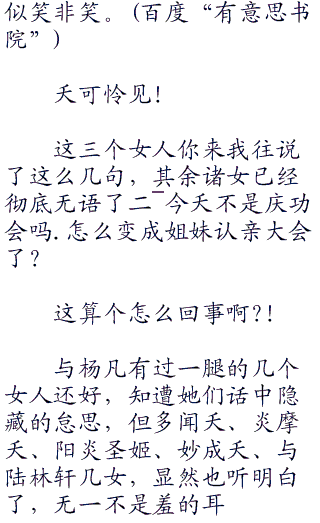 似笑非笑。(百度“有意思书
院”)
天可怜见!
这三个女人你来我往说
了这么几句，其余诸女已经
彻底无语了二¯今天不是庆功
会吗.怎么变成姐妹认亲大会
了?
这算个怎么回事啊?!
与杨凡有过一腿的几个
女人还好，知遭她们话中隐
藏的怠思，但多闻天、炎摩
天、阳炎圣姬、妙成天、与
陆林轩几女，显然也听明白
了，无一不是羞的耳